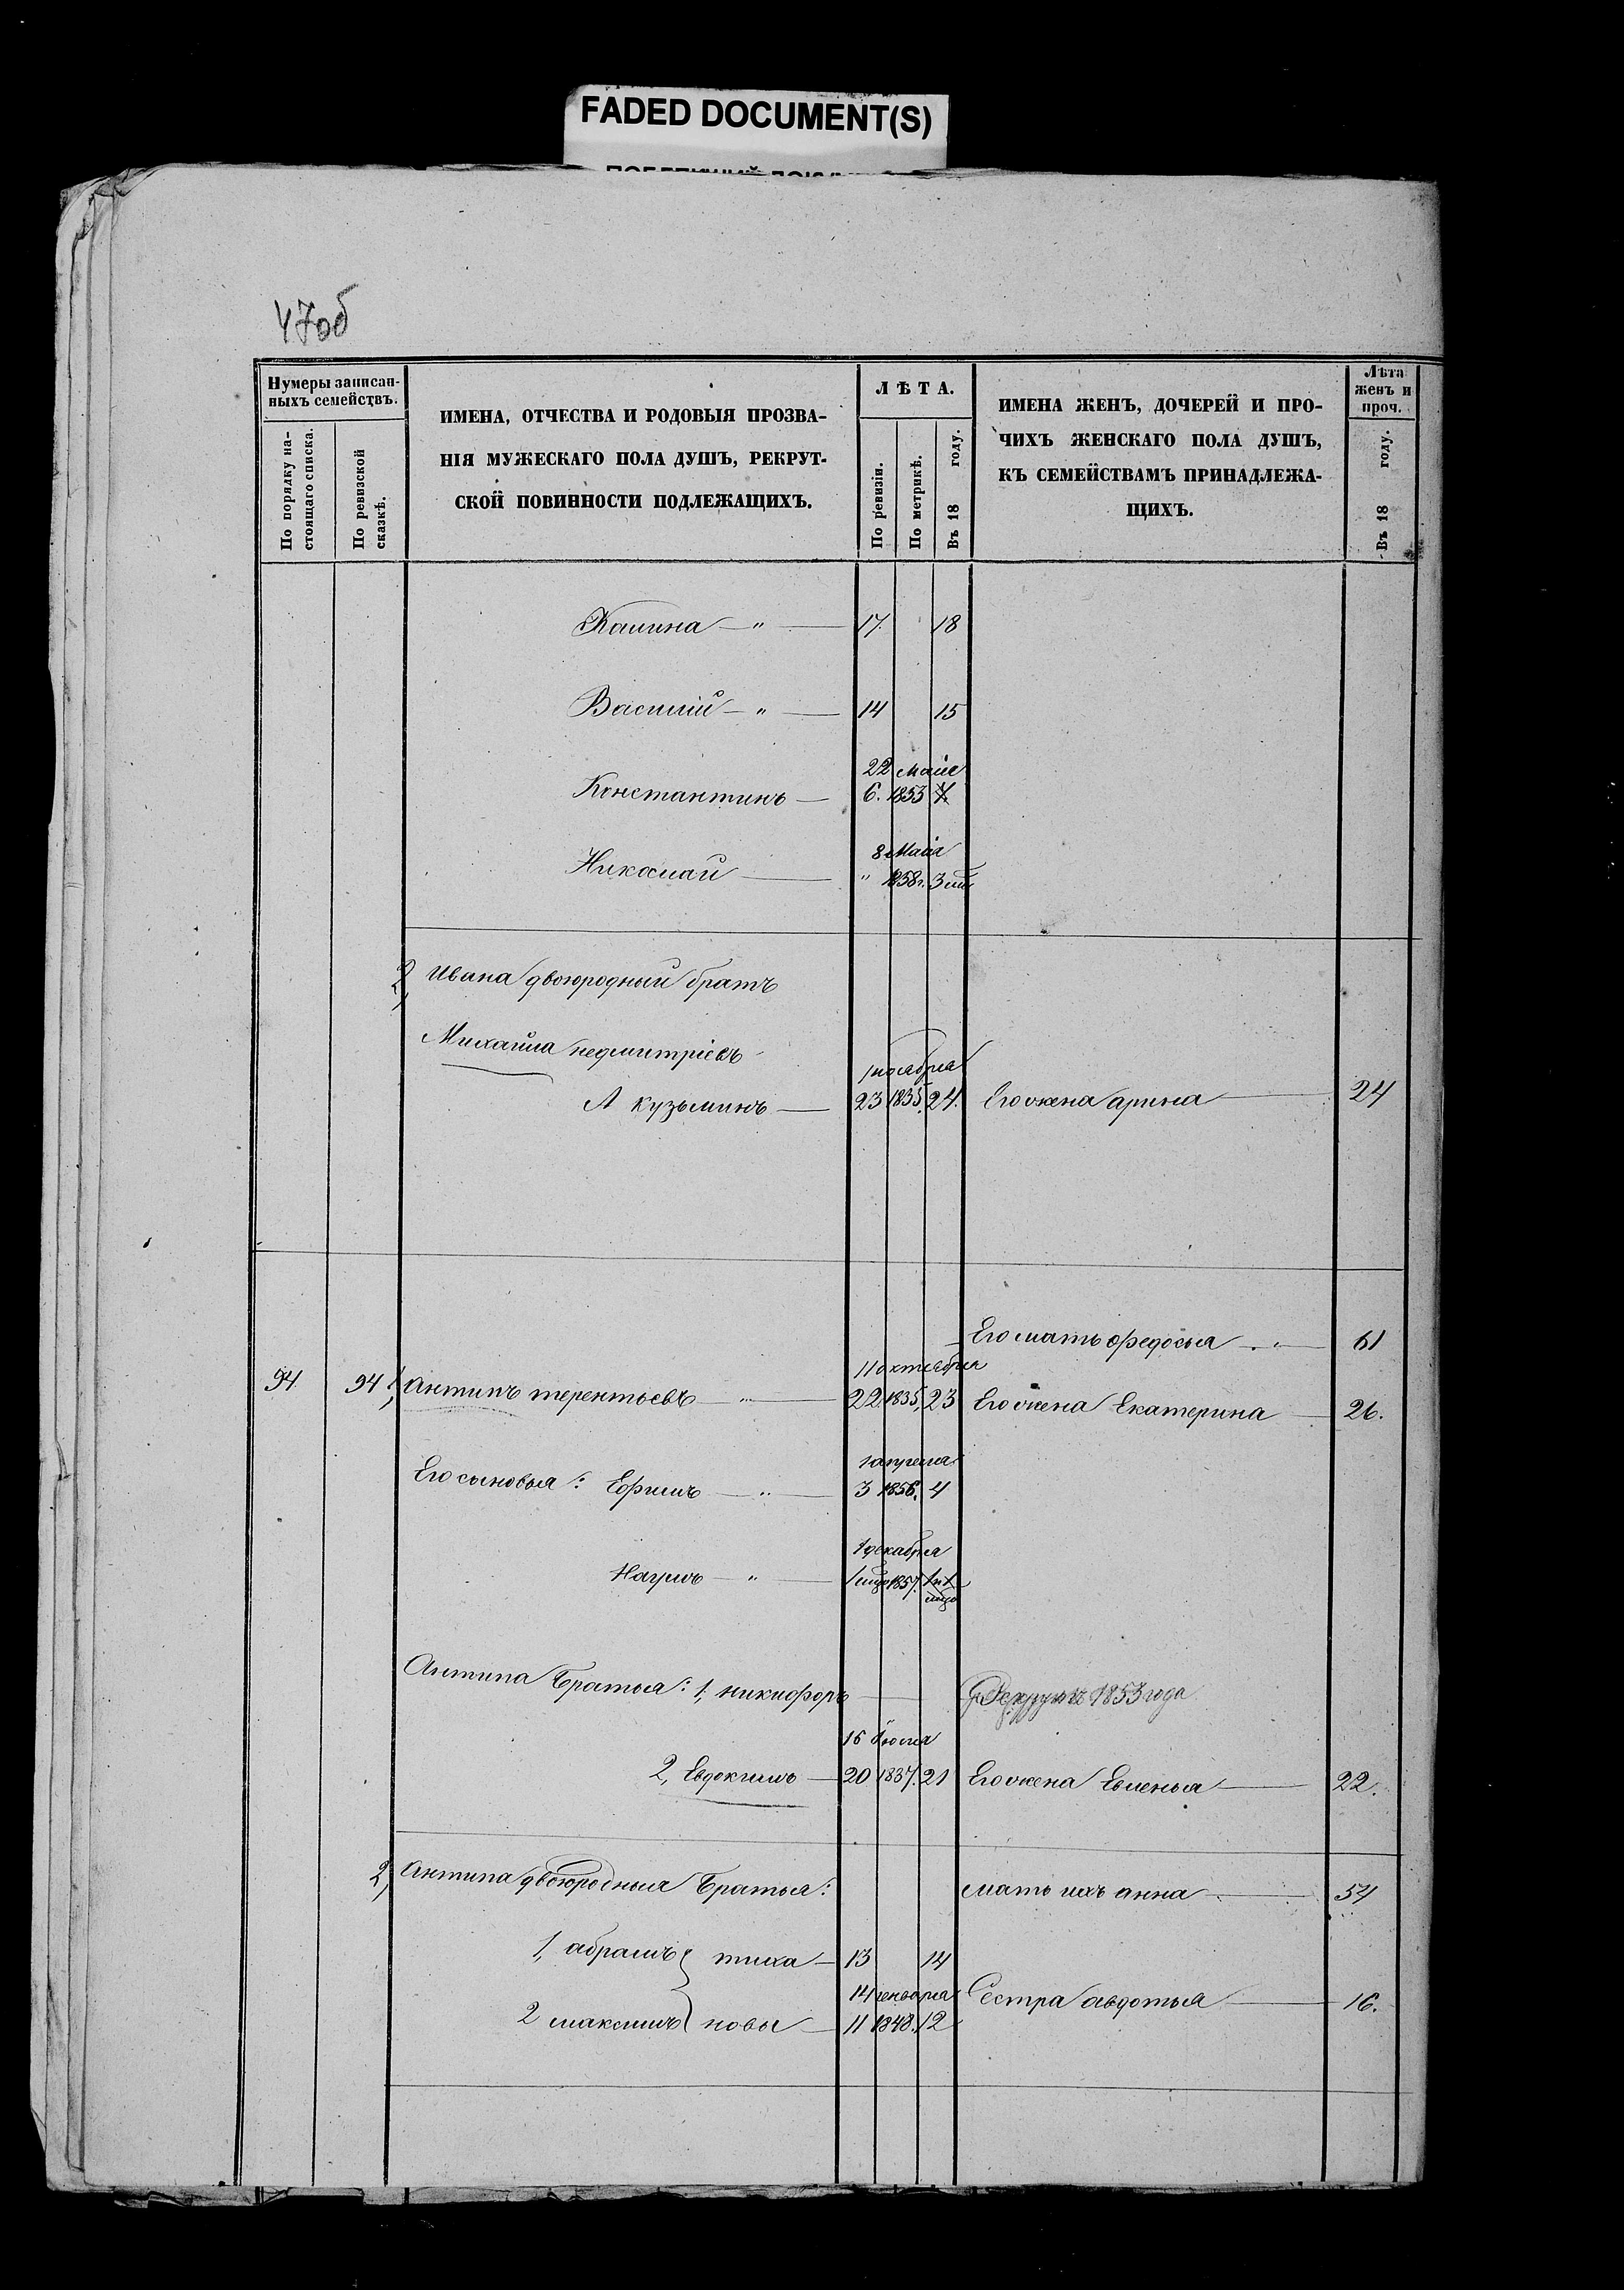 FADED DOCUMENT(S)
47об
Нумеры записан-
ныхъ семействъ.
По порядку на-
стоящаго списка.
По ревизской
сказкѣ.
ИМЕНА, ОТЧЕСТВА И РОДОВЫЯ ПРОЗВА-
НІЯ МУЖЕСКАГО ПОЛА ДУШЪ, РЕКРУТ-
СКОЙ ПОВИННОСТИ ПОДЛЕЖАЩИХЪ.
ЛѢТА.
По ревизіи.
По метрикѣ.
Въ 18 году.
ИМЕНА ЖЕНЪ, ДОЧЕРЕЙ И ПРО-
ЧИХЪ ЖЕНСКАГО ПОЛА ДУШЪ,
КЪ СЕМЕЙСТВАМЪ ПРИНАДЛЕЖА-
ЩИХЪ.
Лѣта
женъ и
проч.
Въ 18 году.
Калина — " — 17. 18
Василій — " — 14 15
22 Маія
Константинъ — 6. 1853
8 Маія
Николай — " 1858г.
2, Ивана двоюродный братъ
Михайла недмитріевъ
1 ноября
А кузьминъ — 23 1835. 24. Его жена арина — 24
Его мать федосья — " — 61
11 октября
94. 94 1, антипъ терентьевъ — " — 22. 1835, 23 Его жена Екатерина — 26.
1 апреля
Его сыновья: Ефимъ — " — 3 1856. 4
1 декабря
Наумъ — " — 1 1857.
Антипа Братья: 1, никифоръ — 1853 года
16 Іюля
2, Евдокимъ — 20 1837. 21 Его жена Евленья — 22.
2, Антипа двоюродныя Братья: мать ихъ анна — 54
1, абрамъ } тиха — 13 14
14 генваря Сестра авдотья — 16.
2 максимъ } новы — 11 1848. 12